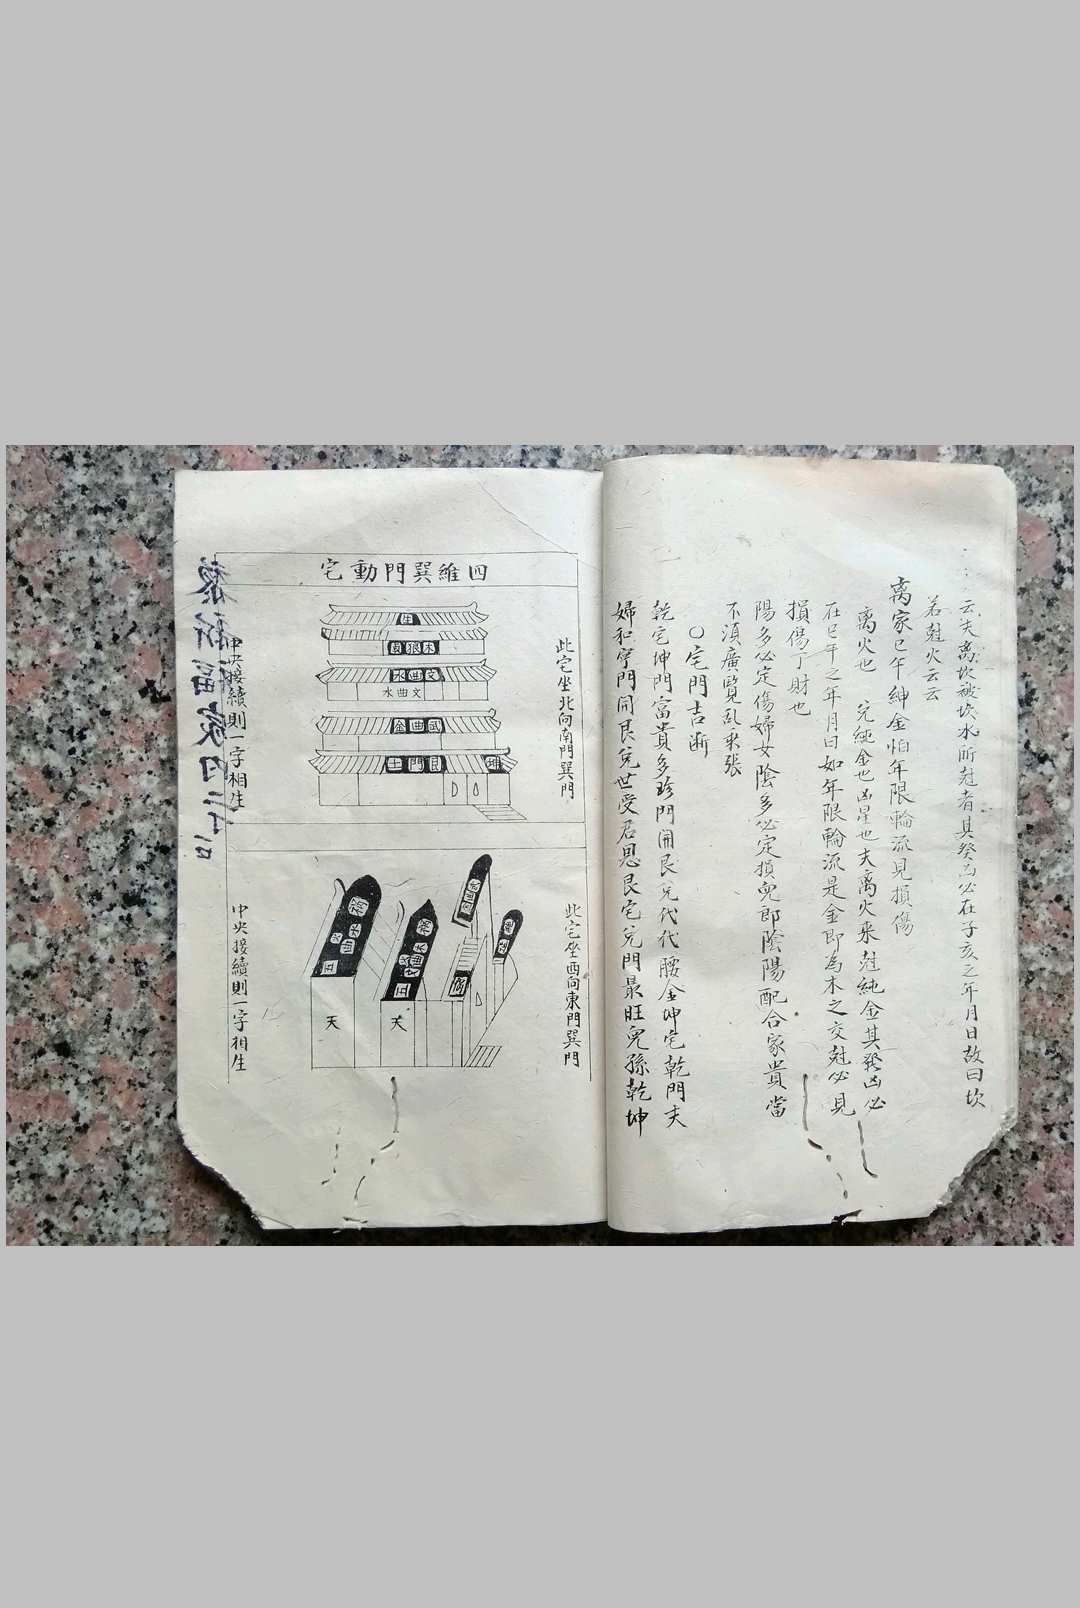 云夫离坎被坎水所尅者其癸為必在子亥之年月日故曰坎
若尅火云云
离家巳午紳金怕年限輪流見損傷
离火也 兌純金也凶星也夫离火來尅純金其發凶必
在巳午之年月日如年限輪流是金即為木之交尅必見
損傷丁財也
陽多必定傷婦女陰多必定損兒郎陰陽配合家貴當
不須廣覽乱來張
〇宅門吉断
乾宅坤門富貴多珍門開艮兌代代腰金坤宅乾門夫
婦和寧門開艮兌世受君恩艮宅兌門最旺兒孫乾坤
四維巽門動宅
此宅坐北向南門巽門
生
木狼貪
文曲水
文曲水
武曲金
艮門土
中央接續則一字相生
此宅坐西向東門巽門
天
天
中央接續則一字相生